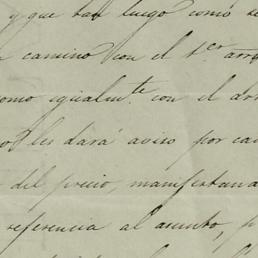 y que han luego como se
camino con el S.or arr
como igualm.te con el ar
les dará aviso por ca
del precio, manifestan
referencia al asunto, p